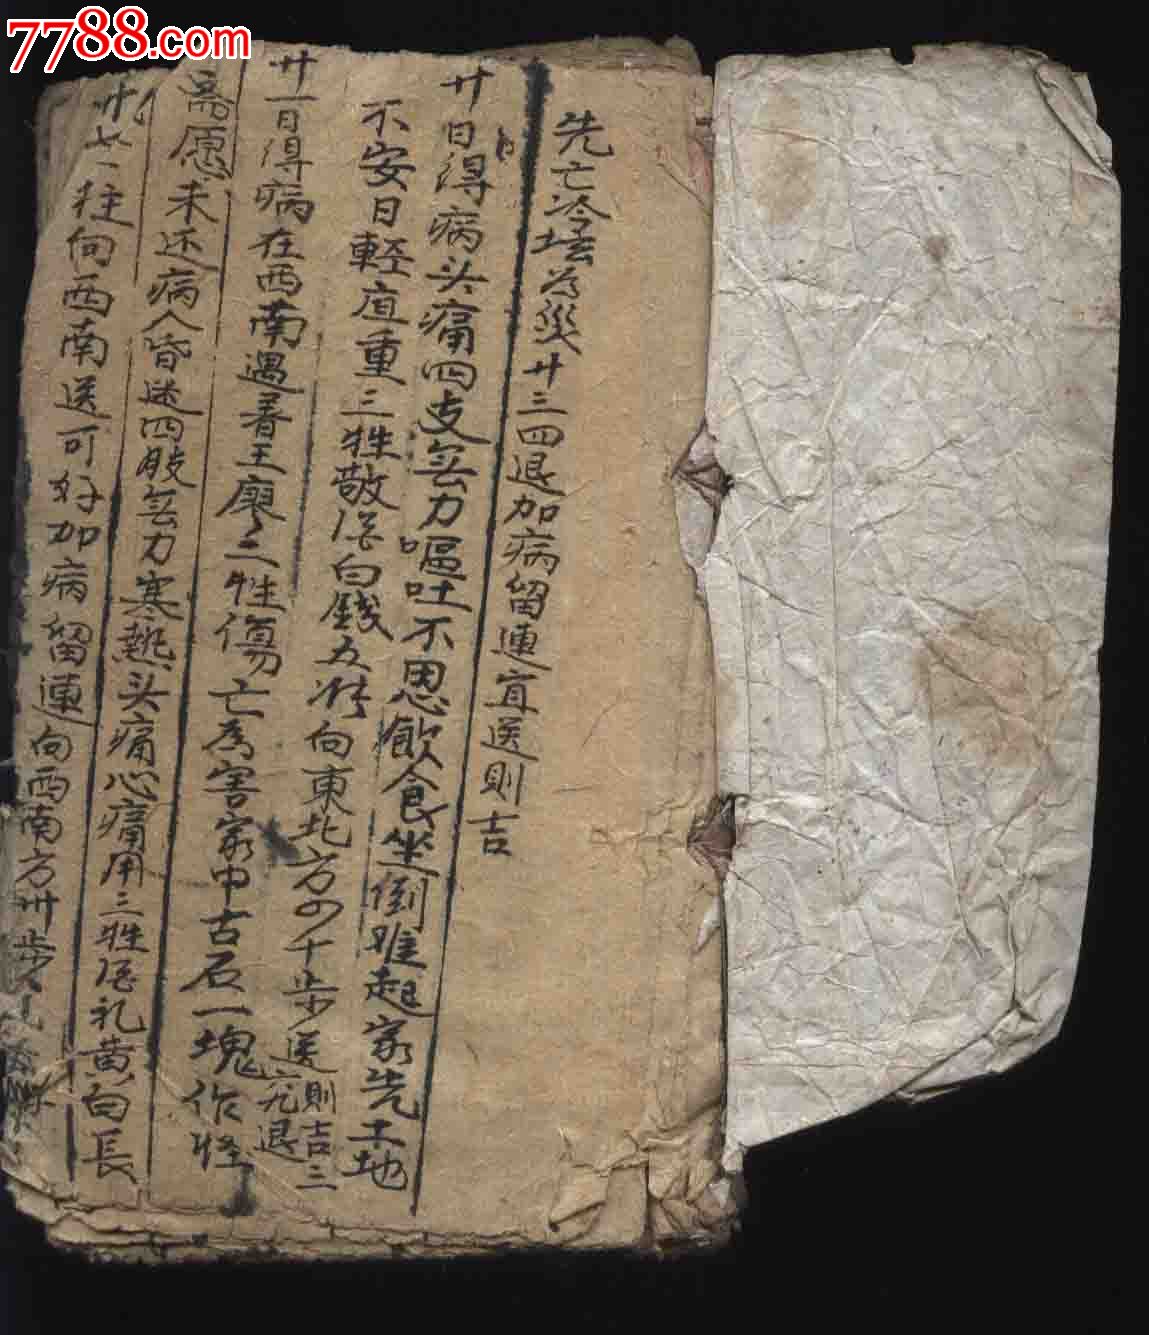 7788.com
先亡冷坛為災廿三四退加病留連宜送則吉
廿日得病头痛四支無力嘔吐不思飲食坐倒难起家先土地
不安日軽直重三牲敬酒白錢五 向東北方四十步送則吉三
九退
廿一日得病在西南遇着王廖二牲傷亡為害家中古石一塊作怪
愿未还病人昏迷四肢無力寒熱头痛心痛用三牲酒礼黄白長
一往向西南送可好加病留連向西南方卅步